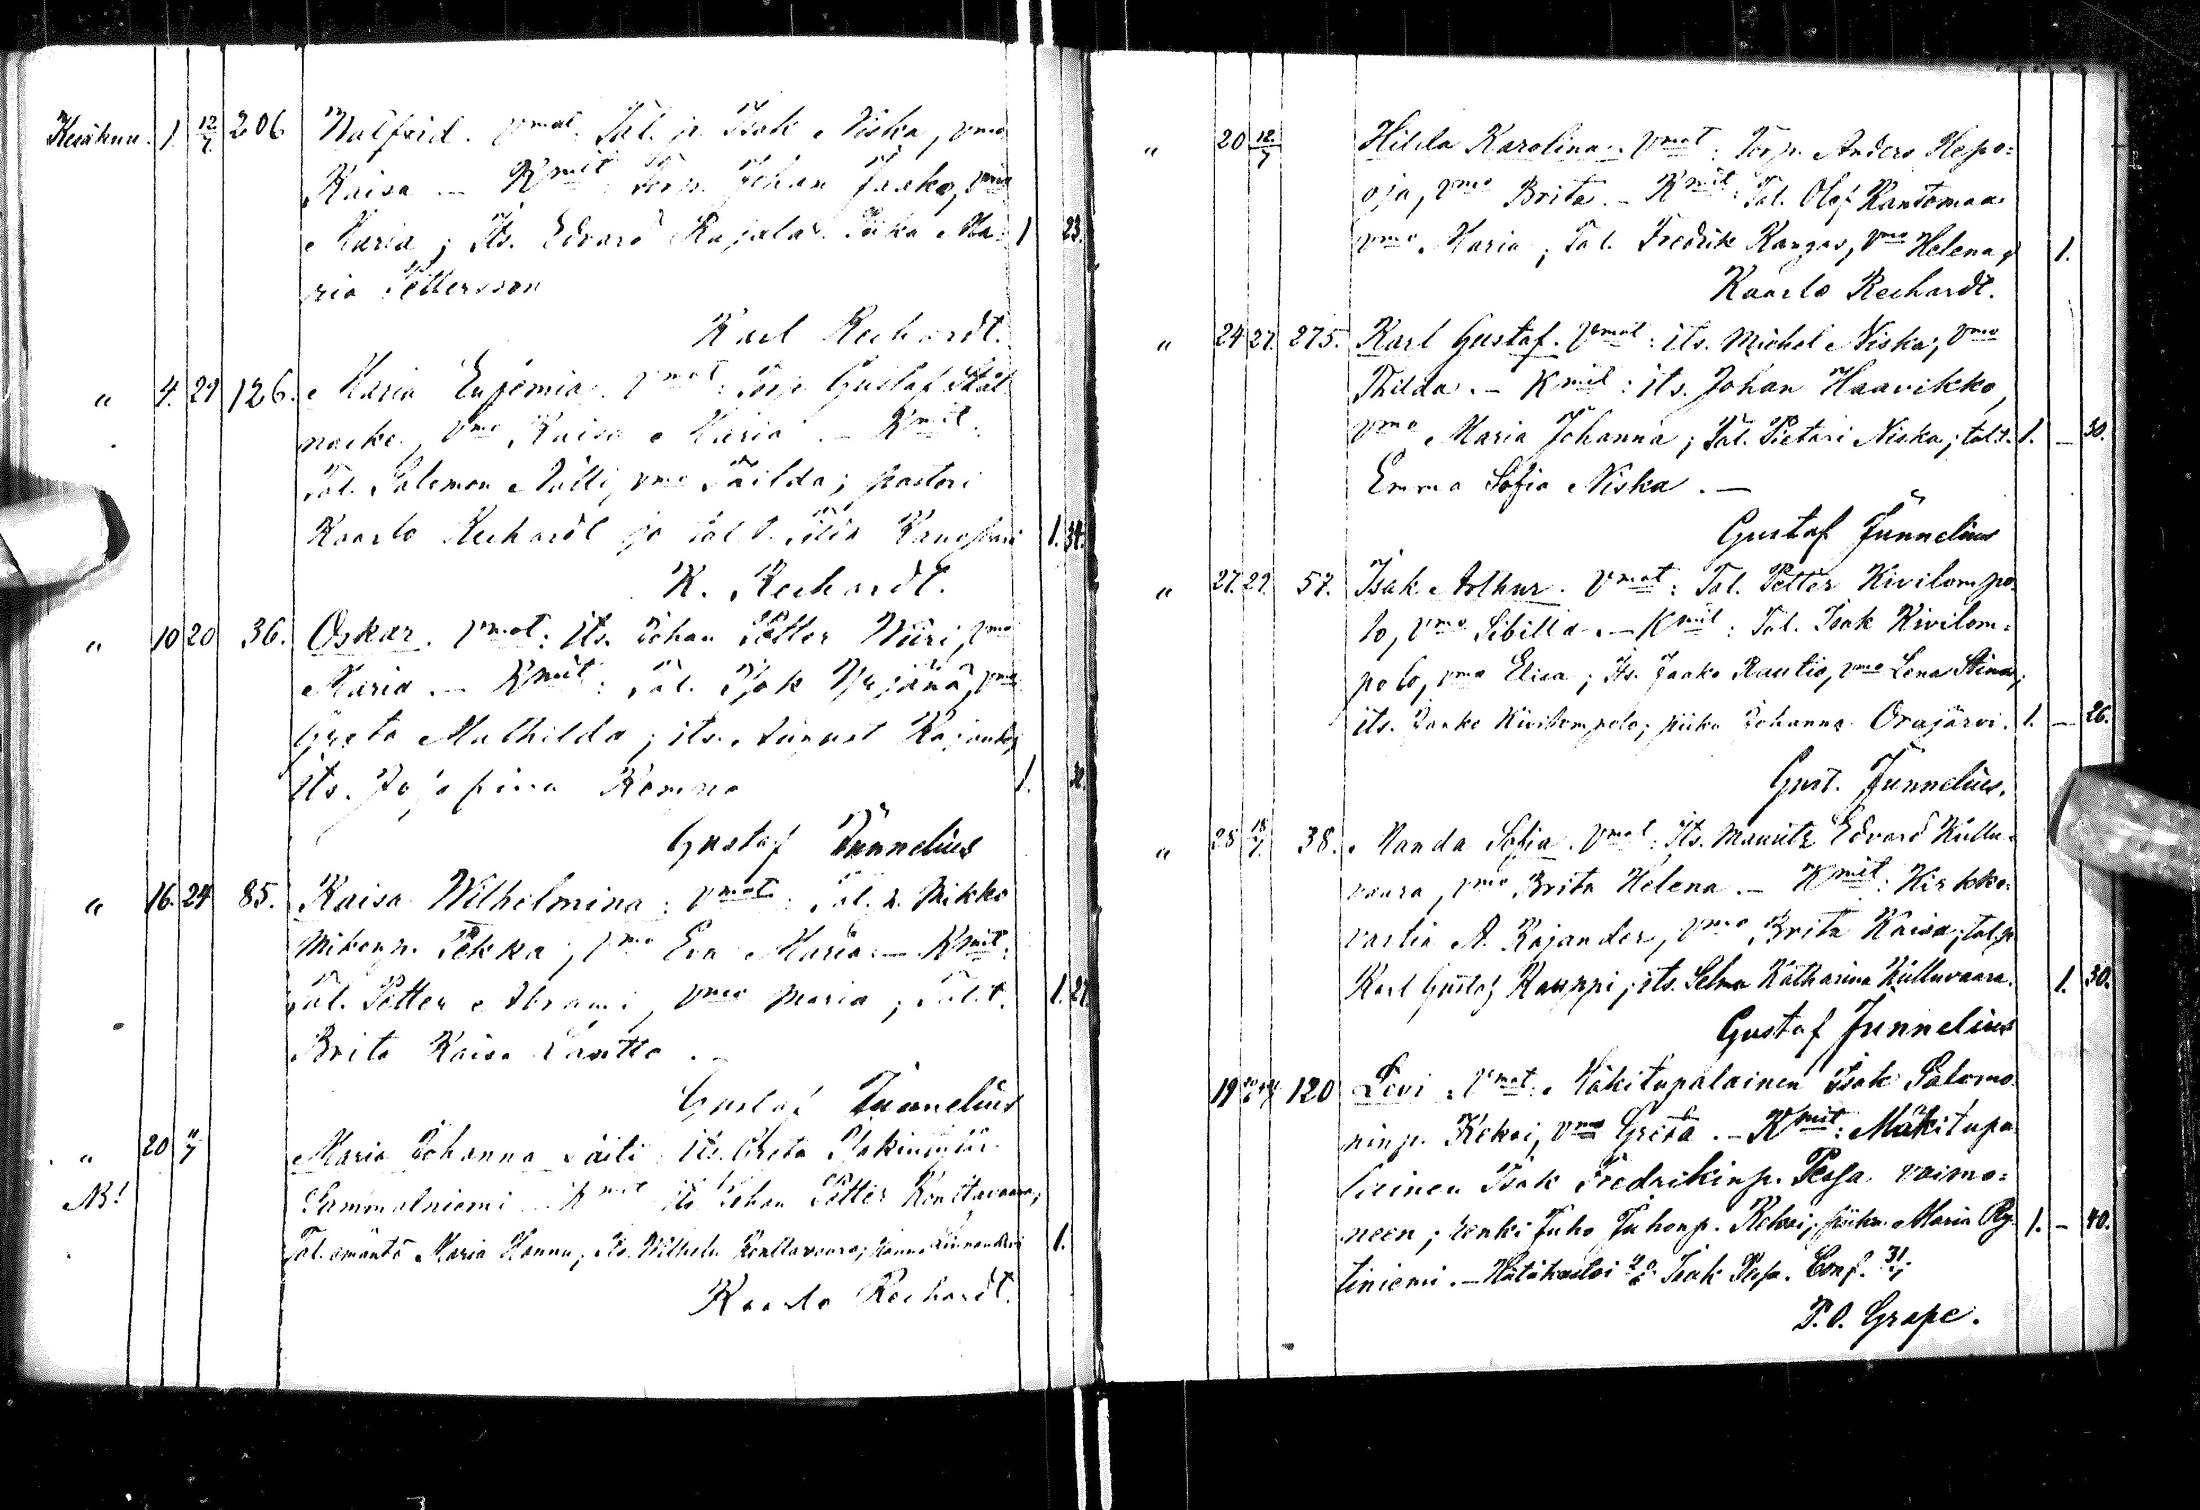 Kesäkuu. 1. 12/7. 206 Walfrid. Vmat: Tal. p. Isak Niska, vmo
Kaisa — Kmit: Torp. Johan Jaako, vmo
Maria; Its. Edvard Rajala. Piika Ma- 1 23.
ria Pettersson
Karl Rechardt.
" 4. 29 126. Maria Eufemia. Vmat: Torp. Gustaf Stål-
nacke, Vmo Kaisa Maria. — Kmit:
Tal. Salomon Nulli, vmo Tilda; pastori
Kaarlo Rechardt ja tal. t. 1. 34.
K. Rechardt.
" 10 20 36. Oskar. Vmat: Its. Johan Petter Niiri, vmo
Maria. — Kmit: Tal. Isak Yrjänä, vmo
Greta Mathilda; its. August
its. Josefina 1. 32.
Gustaf Junnelius
" 16. 24 85. Kaisa Wilhelmina: Vmat: Tal. p. Mikko
Mikonp. Pekka; Vmo Eva Maria. — Kmit:
Tal. Petter Abrami, Vmo Maria; Tal. t. 1. 27.
Brita Kaisa Lantto. —
Gustaf Junnelius
" 20 7 Maria Johanna. Äiti: its. Greta
NB! Sammalniemi. Kmit its. Johan Petter Konttavaara;
Tal. emäntä Maria Hannu; Its. Wilhelm Konttavaara; 1.
Kaarlo Rechardt.
" 20 12/7 Hilda Karolina. Vmat: Torp. Anders Hepo-
oja, vmo Brita. — Kmit: Tal. Olof Rantamaa
vmo Maria; Tal. Fredrik Kangas, vmo Helena. 1.
Kaarlo Rechardt.
" 24 27. 275. Karl Gustaf. Vmat: its. Michel Niska, Vmo
Thilda. — Kmit: its. Johan Haavikko,
Vmo Maria Johanna; Tal. Pietari Niska; tal. t. 1. — 30.
Emma Sofia Niska. —
Gustaf Junnelius
" 27. 29. 57. Isak Arthur. Vmat: Tal. Petter Kivilompo-
lo, vmo Sibilla. — Kmit: Tal. Isak Kivilom-
polo, vmo Elisa; Its. Jaako Rautio, vmo Lena Stina;
its. Jaako Kivilompolo; piika Johanna Orajärvi. 1. — 26.
Gust. Junnelius.
" 28 18/7. 38. Manda Sofia. Vmat: Its. Mauritz Edvard Kullu-
vaara, vmo Brita Helena. — Kmit: Kirkko-
vartia A. Rajander, vmo Brita Kaisa; tal. p.
Karl Gustaf Kauppi; its. Selma Katharina Kulluvaara. 1. 30.
Gustaf Junnelius
19 120 Levi. Vmat. Mäkitupalainen Isak Salomo-
ninp. Kekoi, vmo Greta. — Kmit: Mäkitupa-
lainen Isak Fredrikinp. vaimo-
neen; renki Juho Juhonp. piika Maria Ry- 1. — 40.
tiniemi. — Hätäkastoi Isak Conf. 31/7
P. O. Grape.